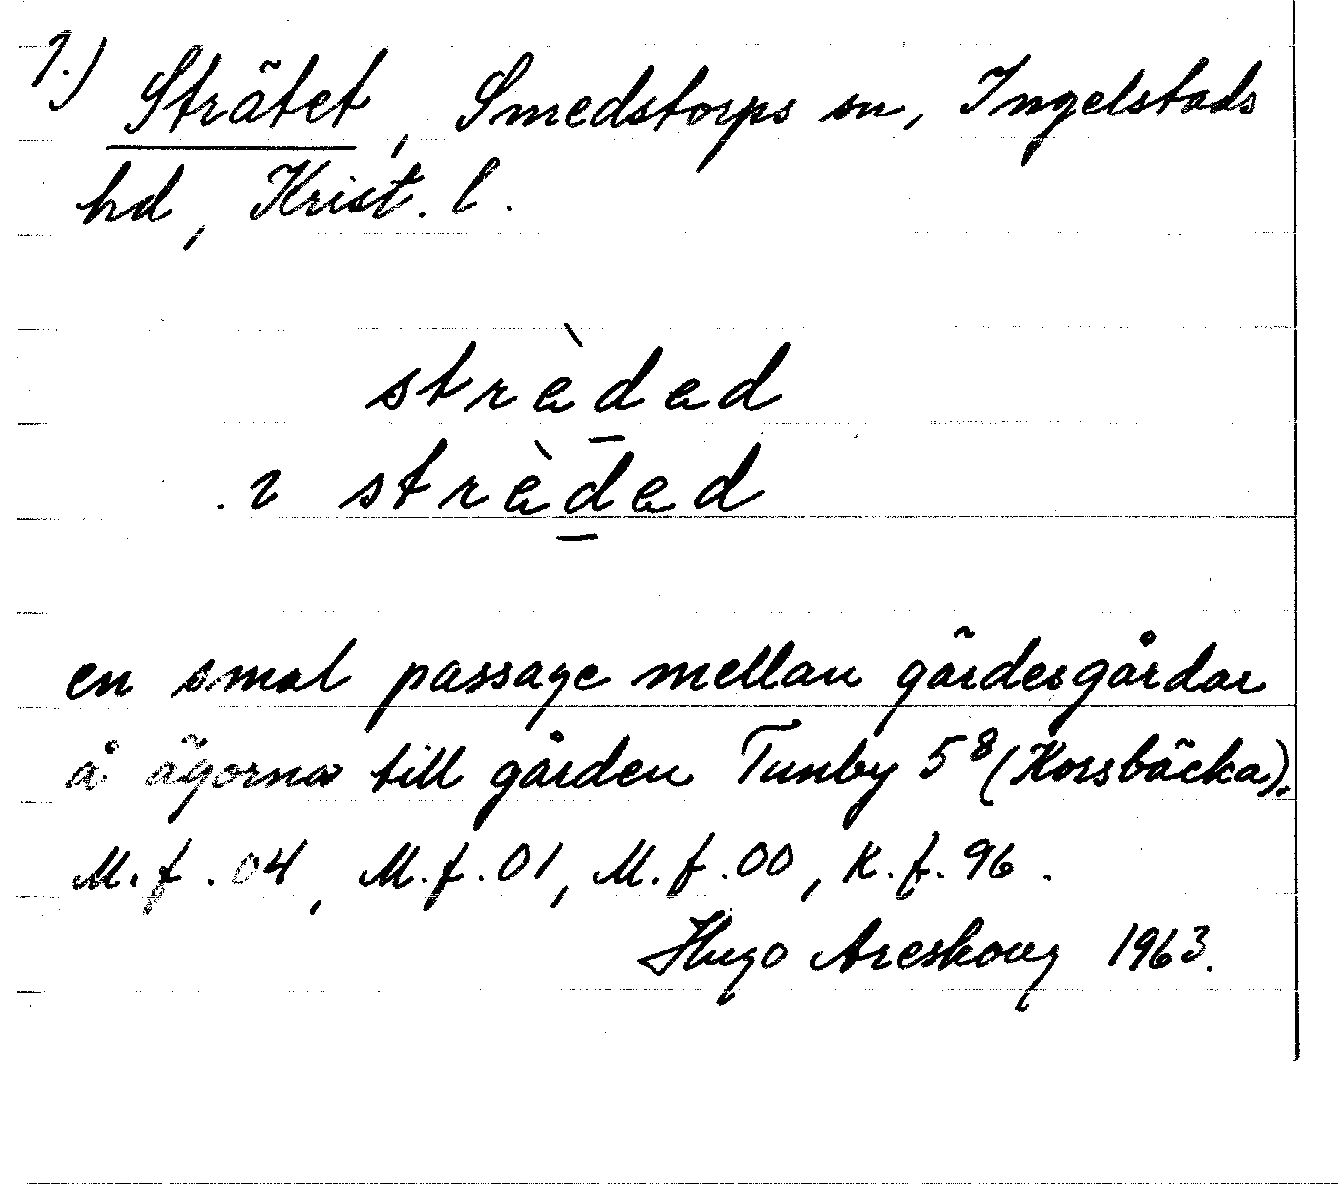 1.) Strätet, Smedstorps sn, Ingelstads
hd, Krist. l.
strèded
ı strèded
en smal passage mellan gärdesgårdar
å ägorna till gården Tunby 5⁸ (Korsbäcka).
M.f. 04, M.f. 01, M.f. 00, K.f. 96.
Hugo Areskoug 1963.